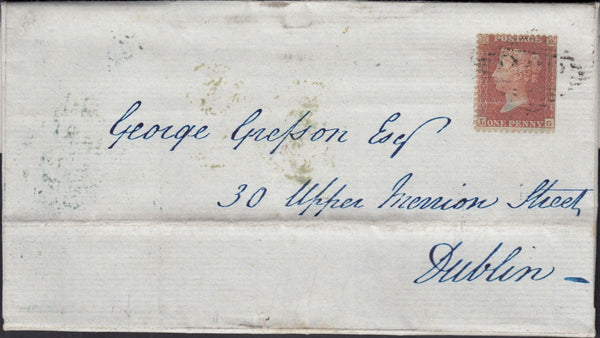 POSTAGE
ONE PENNY
George Gresson Esq
30 Upper Merrion Street
Dublin